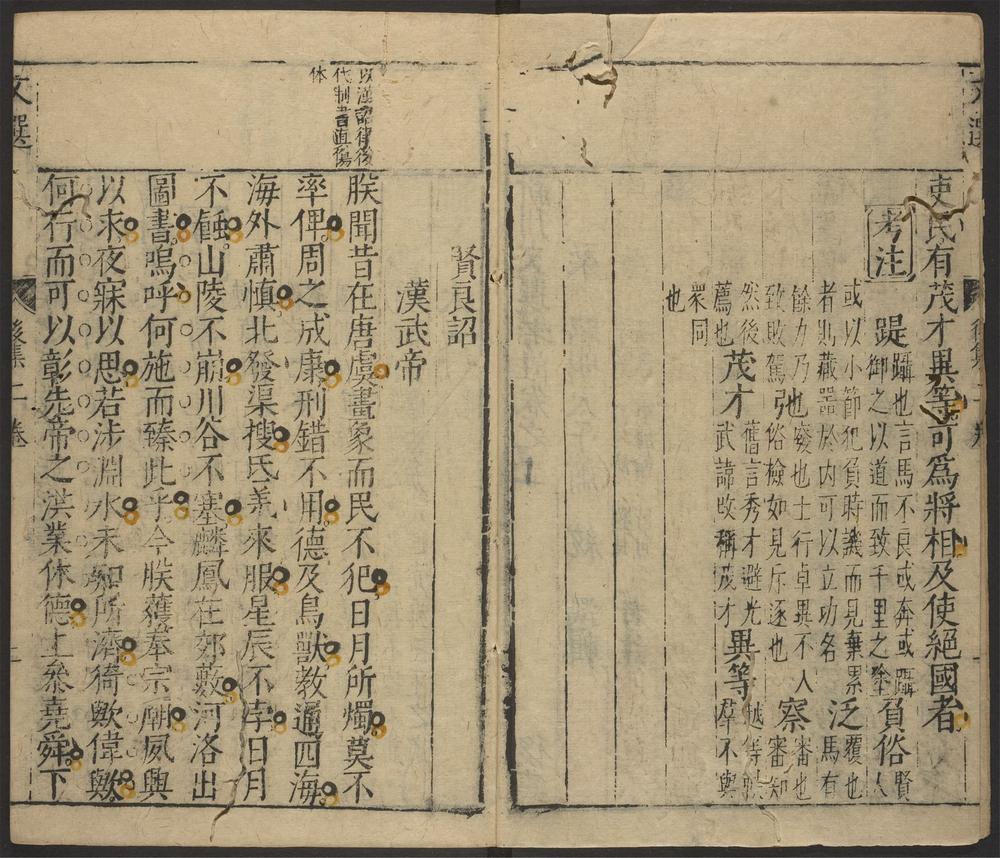 文選
吏民有茂才異等可為將相及使絕國者
考注
踶 躡也言馬不良或奔或躡
御之以道而致千里之塗 負俗 賢
人
或以小節犯負時譏而見棄累
者則藏器於内可以立功名 泛 覆也
馬有
餘力乃也 也士行卓異不入
致敗駕 俗檢如見斥逐也 察 審也
審知
然後
薦也 茂才 舊言秀才避光
武諱改稱茂才 異等 越等軼
羣不與
衆同
也
賢良詔
漢武帝
以漢詔律後
代制書直傷
体
朕聞昔在唐虞畫象而民不犯日月所燭莫不
率俾周之成康刑錯不用德及鳥獸教通四海
海外肅慎北發渠搜氐羌來服星辰不孛日月
不蝕山陵不崩川谷不塞麟鳳在郊藪河洛出
圖書嗚呼何施而臻此乎今朕獲奉宗廟夙興
以求夜寐以思若涉淵水未知所濟猗歟偉歟
何行而可以彰先帝之洪業休德上參堯舜下
文選
後集一卷